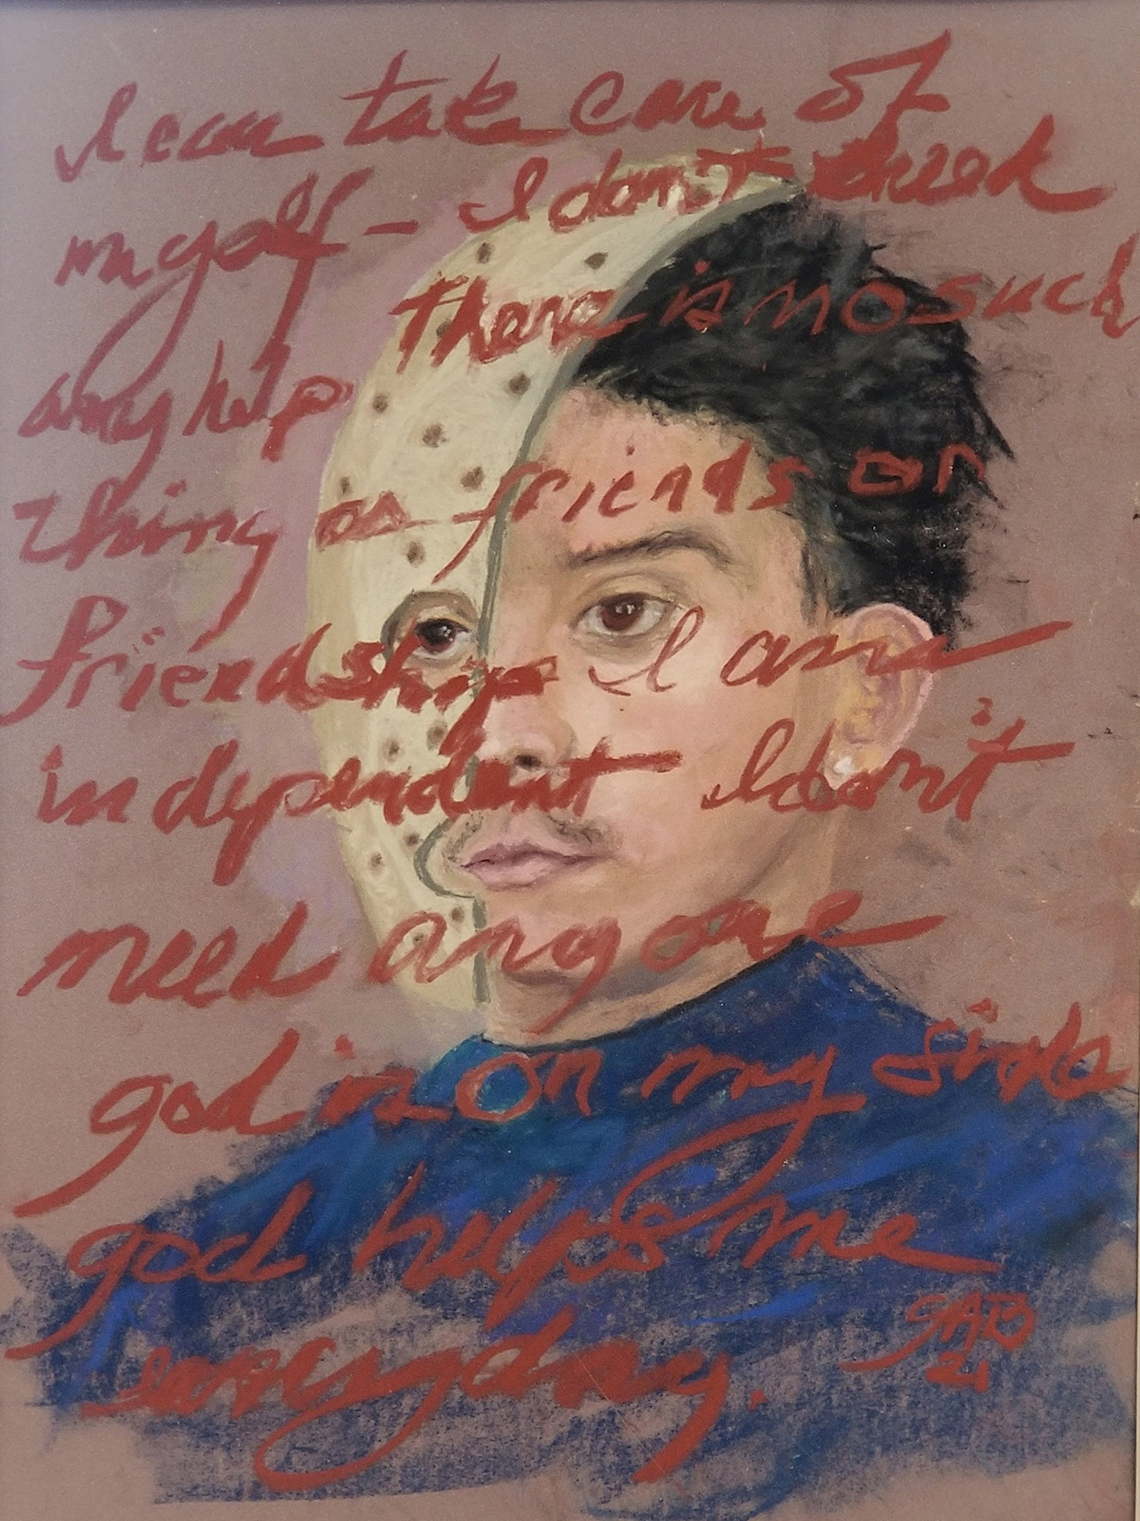 I can take care of
myself - I don't need
any help There is no such
thing as friends or
friendship I am
independent I don't
need anyone
god is on my side
god helps me
everyday.
SAB
21